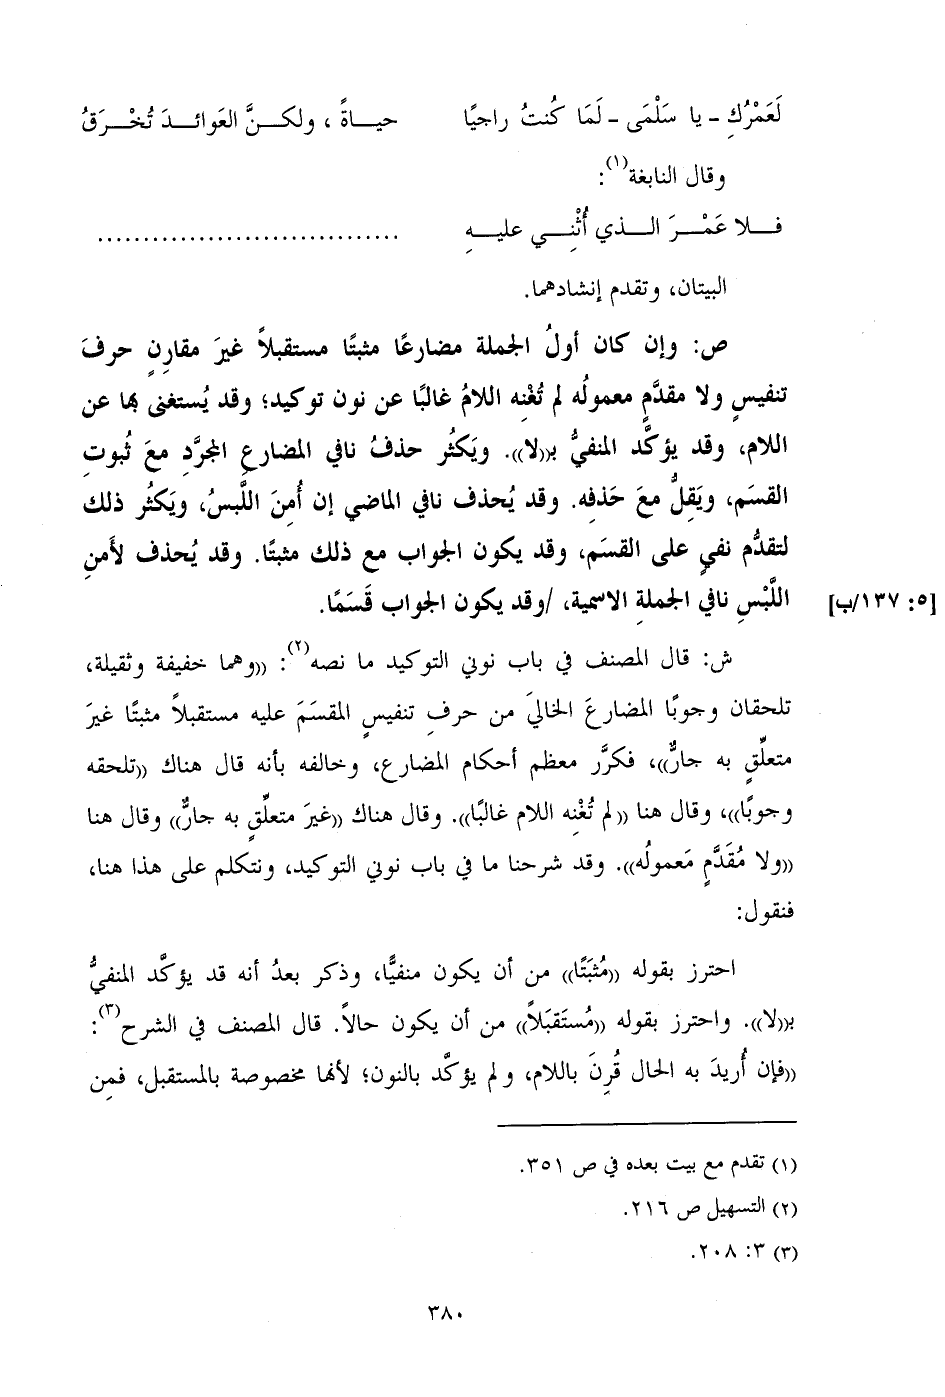 لَعَمْرُكِ - يا سَلْمَى - لَمَا كُنتُ راجيًا حيـــاةً ، ولكـــنَّ العَوائـــدَ تُخْـــرَقُ
وقال النابغة(١):
فـــلا عَمْـــرَ الـــذي أُثْنِـــي عليـــهِ ..................................
البيتان، وتقدم إنشادهما.
ص: وإن كان أولُ الجملة مضارعًا مثبتًا مستقبلاً غيرَ مقارنٍ حرفَ
تنفيسٍ ولا مقدَّمٍ معمولُه لم تُغْنِه اللامُ غالبًا عن نون توكيد؛ وقد يُستغنى بها عن
اللام، وقد يؤكَّد المنفيُّ بـ((لا)). ويَكثُر حذفُ نافي المضارعِ المجرَّدِ معَ ثُبوتِ
القسَم، ويَقِلُّ معَ حَذفِه. وقد يُحذف نافي الماضي إن أُمنَ اللَّبسُ، ويَكثُر ذلك
لتقدُّم نفيٍ على القسَم، وقد يكون الجواب مع ذلك مثبتًا. وقد يُحذف لأَمنِ
اللَّبْسِ نافي الجملةِ الاسمية، /وقد يكون الجواب قَسَمًا. [٥: ١٣٧/ب]
ش: قال المصنف في باب نوني التوكيد ما نصه(٢): ((وهما خفيفة وثقيلة،
تلحقان وجوبًا المضارعَ الخاليَ من حرفِ تنفيسٍ المقسَمَ عليه مستقبلاً مثبتًا غيرَ
متعلِّقٍ به جارٌّ))، فكرَّر معظم أحكام المضارع، وخالفه بأنه قال هناك ((تلحقه
وجوبًا))، وقال هنا ((لم تُغْنِه اللام غالبًا)). وقال هناك ((غيرَ متعلِّقٍ به جارٌّ)) وقال هنا
((ولا مُقَدَّمٍ مَعمولُه)). وقد شرحنا ما في باب نوني التوكيد، ونتكلم على هذا هنا،
فنقول:
احترز بقوله ((مُثبَتًا)) من أن يكون منفيًّا، وذكر بعدُ أنه قد يؤكَّد المنفيُّ
بـ((لا)). واحترز بقوله ((مُستَقبَلاً)) من أن يكون حالاً. قال المصنف في الشرح(٣):
((فإن أُريدَ به الحال قُرِنَ باللام، ولم يؤكَّد بالنون؛ لأنها مخصوصة بالمستقبل، فمِن
(١) تقدم مع بيت بعده في ص ٣٥١.
(٢) التسهيل ص ٢١٦.
(٣) ٣: ٢٠٨.
٣٨٠